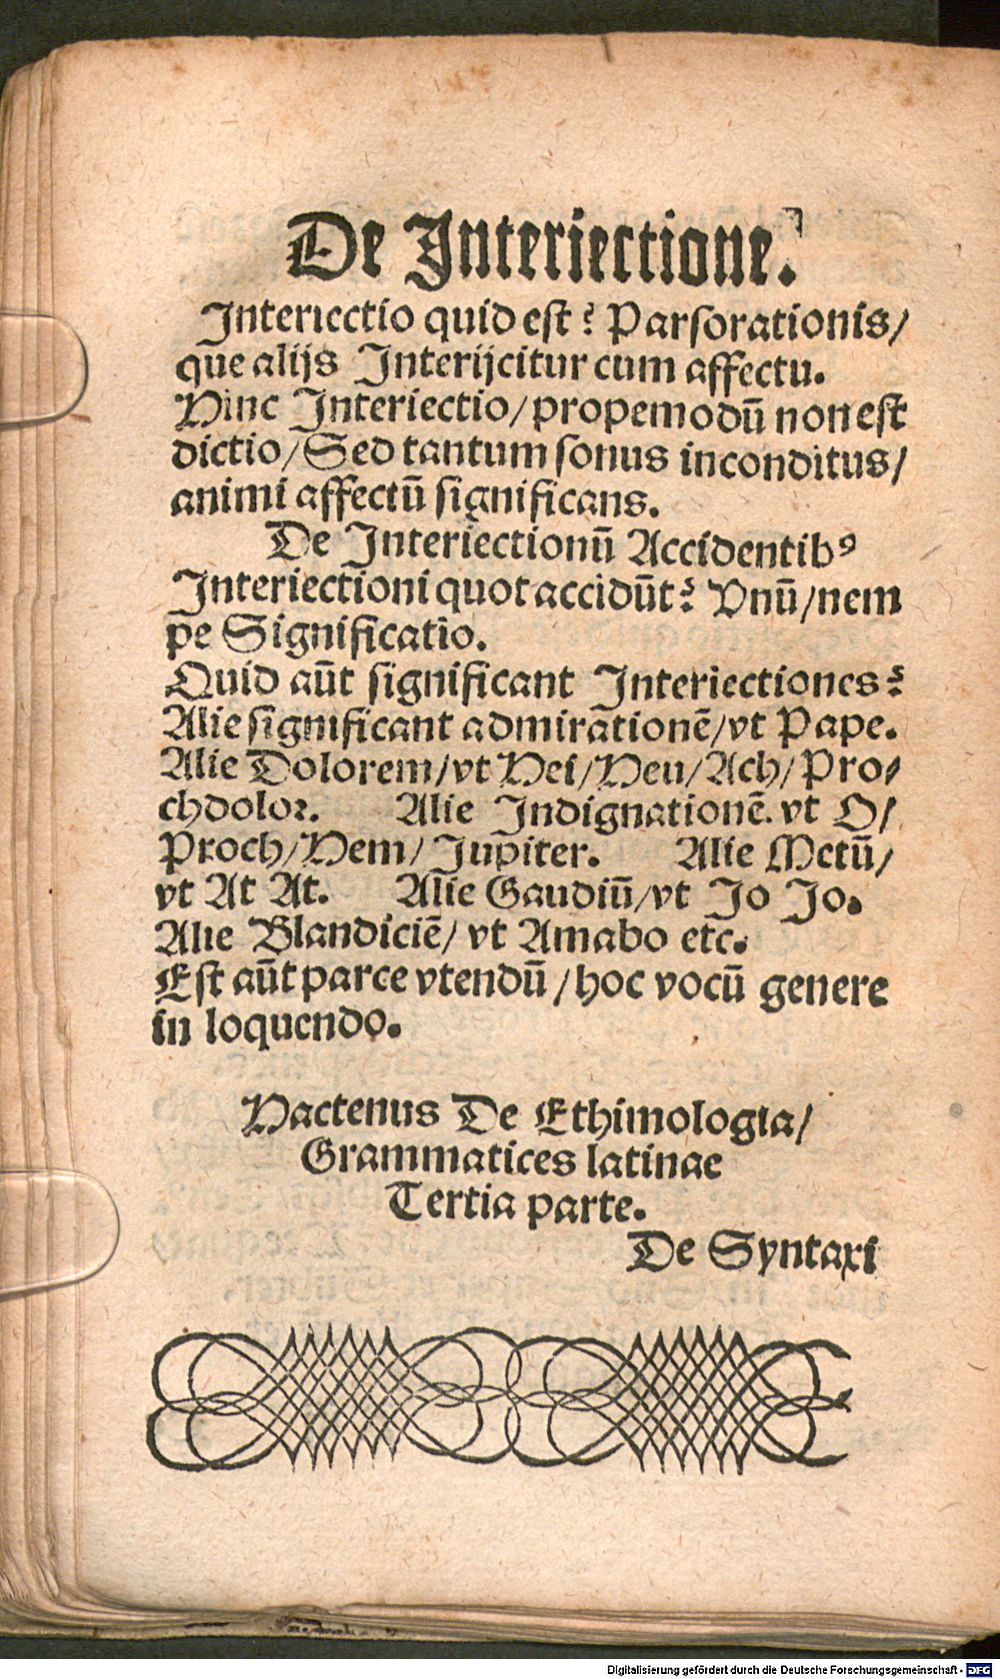 De Interiectione.
Interiectio quid est? Parsorationis/
que alijs Interijcitur cum affectu.
Hinc Interiectio/propemodū non est
dictio/Sed tantum sonus inconditus/
animi affectū significans.
De Interiectionū Accidentibꝰ
Interiectioni quot accidūt? Vnū/nem
pe Significatio.
Quid aūt significant Interiectiones?
Alie significant admirationē/vt Pape.
Alie Dolorem/vt Hei/Heu/Ach/Pro⸗
chdolor. Alie Indignationē. vt O/
Proch/Hem/Jupiter. Alie Metū/
vt At At. Alie Gaudiū/vt Jo Jo.
Alie Blandiciē/vt Amabo etc.
Est aūt parce vtendū/hoc vocū genere
in loquendo.
Hactenus De Ethimologia/
Grammatices latinae
Tertia parte.
De Syntaxi
Digitalisierung gefördert durch die Deutsche Forschungsgemeinschaft - DFG